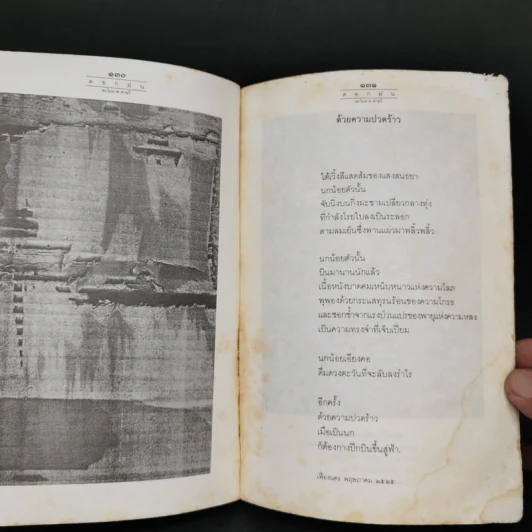 ๑๓๐
ดอกฝน
๑๓๑
ดอกฝน
ด้วยความปวดร้าว
ใต้เวิ้งสีแสดส้มของแสงสนธยา
นกน้อยตัวนั้น
จับนิ่งบนกิ่งมะขามเปลี่ยวกลางทุ่ง
ที่กำลังโรยใบลงเป็นระลอก
ตามลมเย็นซึ่งพานแผ่วมาพลิ้วพลิ้ว
นกน้อยตัวนั้น
บินมานานนักแล้ว
เนื้อหนังบาดคมเหน็บหนาวแห่งความโลภ
พุพองด้วยกระแสทุรนร้อนของความโกรธ
และชอกช้ำจากแรงป่วนแปรของพายุแห่งความหลง
เป็นความทรงจำที่เจ็บเปี่ยม
นกน้อยเอียงคอ
ดื่มดวงตะวันที่จะลับลงรำไร
อีกครั้ง
ด้วยความปวดร้าว
เมื่อเป็นนก
ก็ต้องกางปีกบินขึ้นสู่ฟ้า.
เฟื่องนคร พฤษภาคม ๒๕๒๕